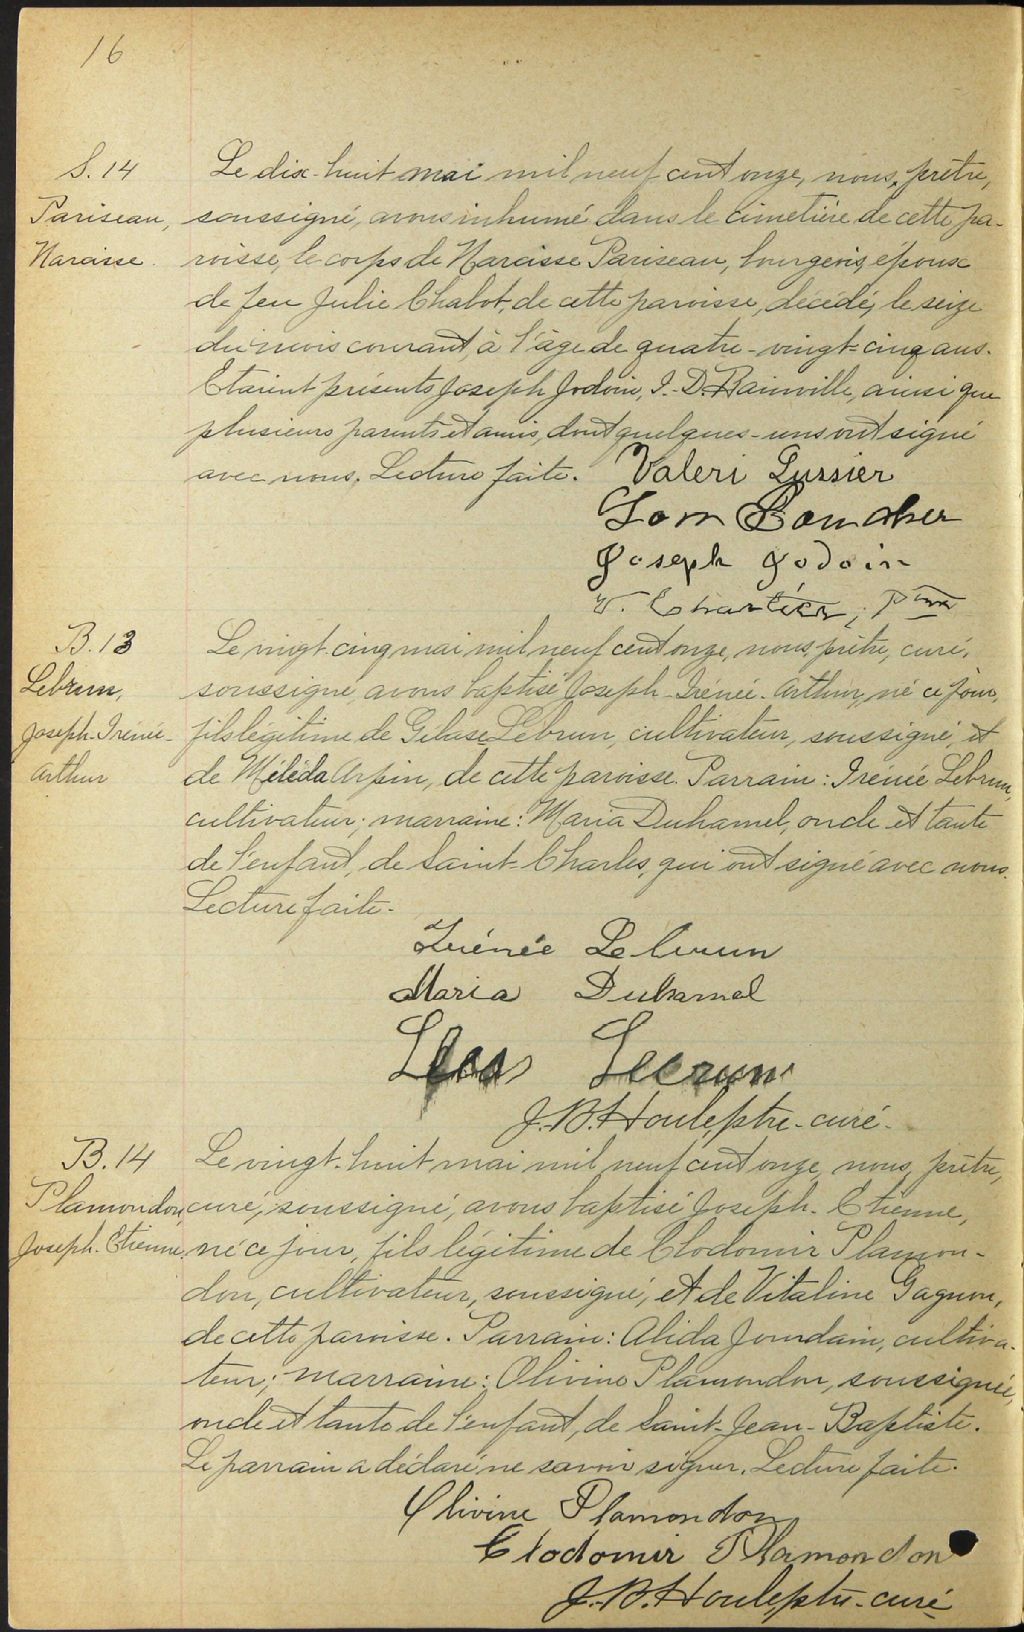 16
S. 14
Pariseau,
Narcisse
Le dix-huit mai mil neuf cent onze, nous, prêtre,
soussigné, avons inhumé dans le cimetière de cette pa-
roisse, le corps de Narcisse Pariseau, bourgeois, époux
de feu Julie Chabot, de cette paroisse, décédé, le seize
du mois courant, à l'âge de quatre-vingt-cinq ans.
Etaient présents Joseph Jodoin, I.-D. Bainville, ainsi que
plusieurs parents et amis, dont quelques-uns ont signé
avec nous. Lecture faite.
Valeri Lussier
Tom Boucher
Joseph Jodoin
V. Chartier, Ptre
B. 13
Lebrun,
Joseph-Irénée-
Arthur
Le vingt-cinq mai mil neuf cent onze, nous, prêtre, curé,
soussigné, avons baptisé Joseph-Irénée-Arthur, né ce jour,
fils légitime de Gélase Lebrun, cultivateur, soussigné, et
de Méléda Arpin, de cette paroisse. Parrain: Irénée Lebrun,
cultivateur; marraine: Maria Duhamel, oncle et tante
de l'enfant, de Saint-Charles, qui ont signé avec nous.
Lecture faite.
Irénée Lebrun
Maria Duhamel
J.-B. Houle, ptre-curé.
B. 14
Plamondon,
Joseph-Etienne
Le vingt-huit mai mil neuf cent onze, nous, prêtre,
curé, soussigné, avons baptisé Joseph-Etienne,
né ce jour, fils légitime de Clodomir Plamon-
don, cultivateur, soussigné, et de Vitaline Gagnon,
de cette paroisse. Parrain: Alida Jourdain, cultiva-
teur; marraine: Olivine Plamondon, soussignée,
oncle et tante de l'enfant, de Saint-Jean-Baptiste.
Le parrain a déclaré ne savoir signer. Lecture faite.
Olivine Plamondon
Clodomir Plamondon
J.-B. Houle, ptre-curé